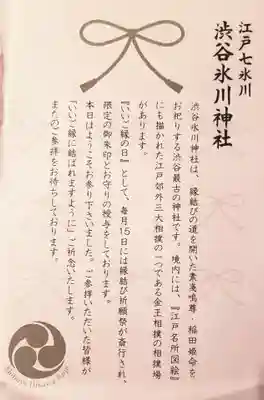 江戸七氷川
渋谷氷川神社
渋谷氷川神社は、縁結びの道を開いた素戔鳴尊・稲田姫命を
お祀りする渋谷最古の神社です。境内には、『江戸名所図絵』
にも描かれた江戸郊外三大相撲の一つである金王相撲の相撲場
があります。
『いいご縁の日』として、毎月15日には縁結び祈願祭が斎行され、
限定の御朱印とお守りの授与をしております。
本日はようこそお参り下さいました。ご参拝いただいた皆様が
「いいご縁に結ばれますように」ご祈念いたします。
またのご参拝をお待ちしております。
Shibuya Hikawa Shrine